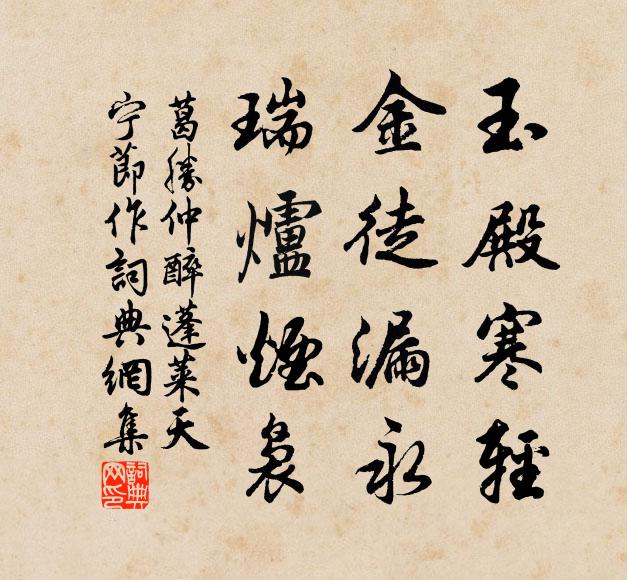 玉殿寒輕
金徒漏永
瑞爐煙裊
葛勝仲醉蓬萊天
宁節作詞典網集
詞典网印